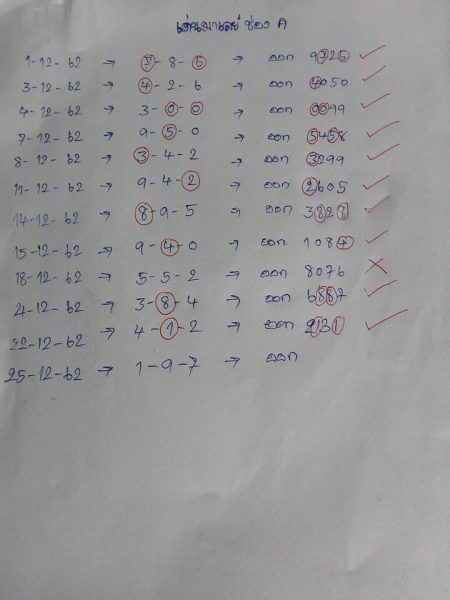 เด่นมาเลย์ ช่อง A
1-12-62 → 7-8-5 → ออก 9725
3-12-62 → 4-2-6 → ออก 4050
4-12-62 → 3-0-0 → ออก 0099
7-12-62 → 9-5-0 → ออก 5458
8-12-62 → 3-4-2 → ออก 3299
11-12-62 → 9-4-2 → ออก 2605
14-12-62 → 8-9-5 → ออก 3828
15-12-62 → 9-4-0 → ออก 1084
18-12-62 → 5-5-2 → ออก 8076
21-12-62 → 3-8-4 → ออก 6887
22-12-62 → 4-1-2 → ออก 2131
25-12-62 → 1-9-7 → ออก